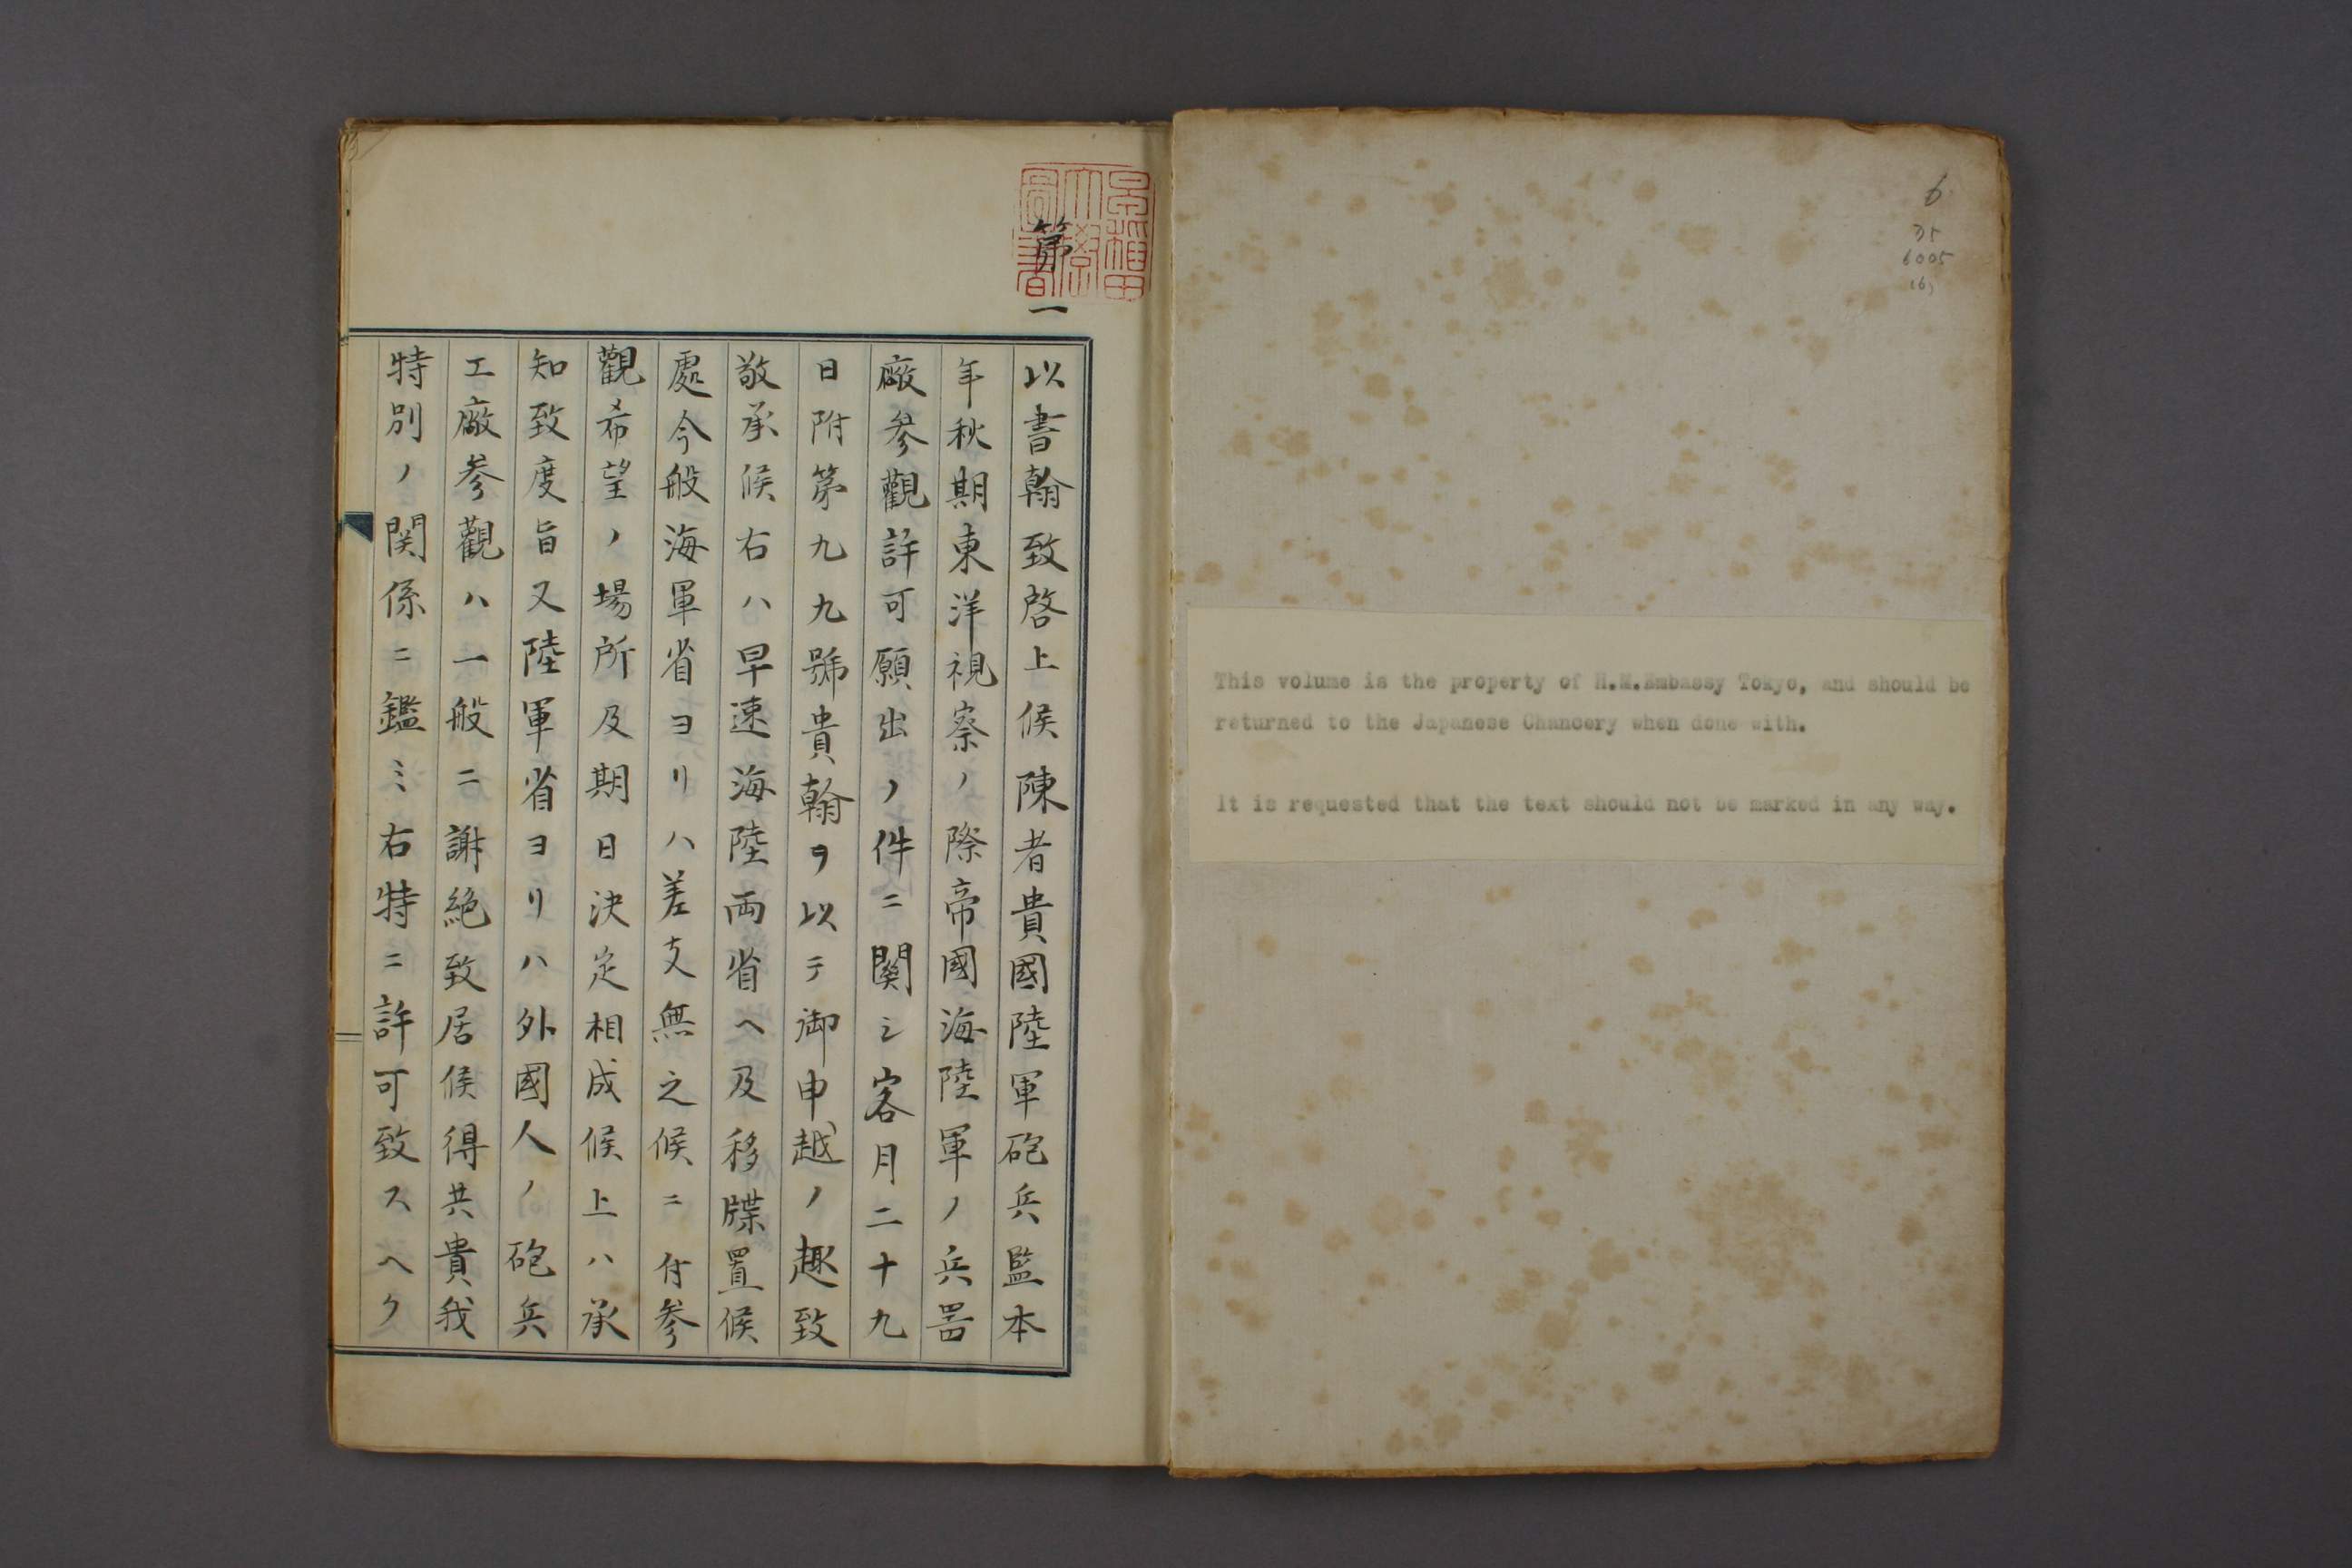 6
6005
This volume is the property of H.M.Embassy Tokyo, and should be
returned to the Japanese Chancery when done with.
It is requested that the text should not be marked in any way.
早稲田
大學
圖書
第一
以書翰致啓上候陳者貴國陸軍砲兵監本
年秋期東洋視察ノ際帝國海陸軍ノ兵器
廠参觀許可願出ノ件ニ関シ客月二十九
日附第九九號貴翰ヲ以テ御申越ノ趣致
敬承候右ハ早速海陸両省ヘ及移牒置候
處今般海軍省ヨリハ差支無之候ニ付参
觀希望ノ場所及期日決定相成候上ハ承
知致度旨又陸軍省ヨリハ外國人ノ砲兵
工廠参觀ハ一般ニ謝絶致居候得共貴我
特別ノ関係ニ鑑ミ右特ニ許可致スヘク